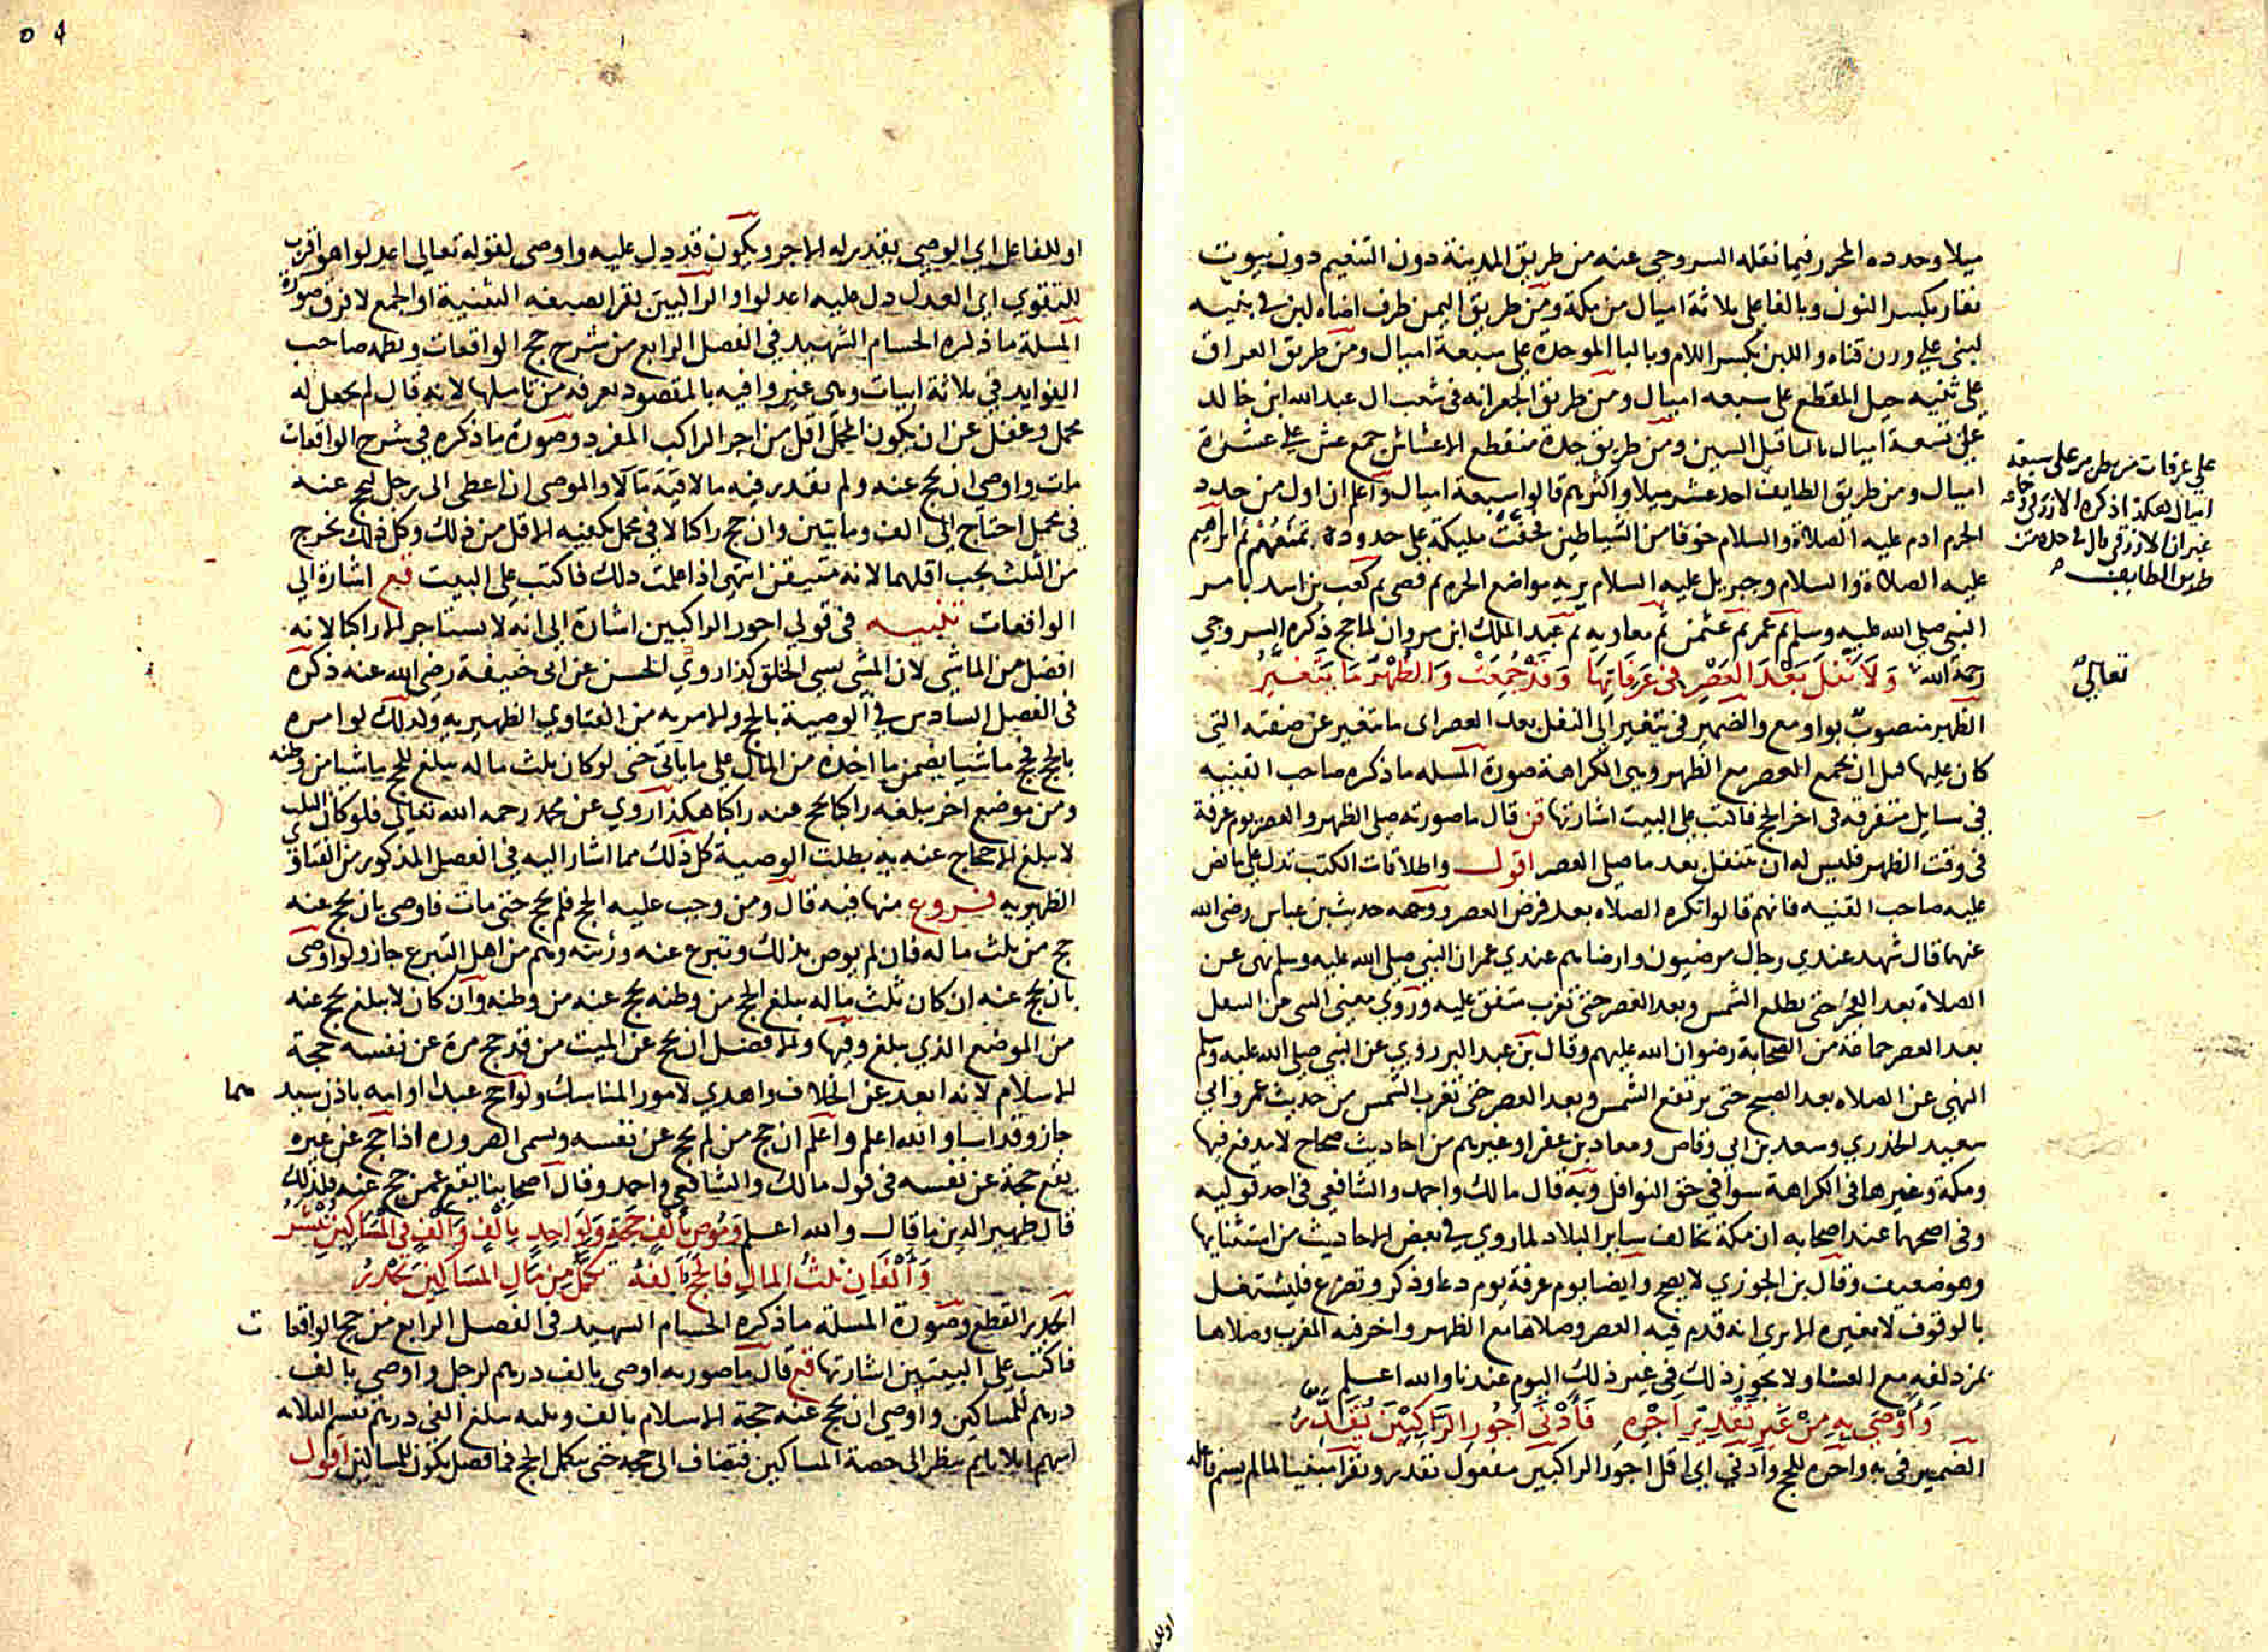 ميلا وحدده المحرر فيما نقله السروجي عنه من طريق المدينة دون التنعيم دون بيوت
نفار بكسر النون وبالفا على ثلاثة اميال من مكة ومن طريق اليمن طرف اضاه لبن في ثنيه
لبنى على وزن قناه واللبن بكسر اللام وبالبا الموحدة على سبعة اميال ومن طريق العراق
على ثنيه جبل المقطع على سبعه اميال ومن طريق الجعرانه في شعب ال عبدالله ابن خالد
على تسعة اميال بالتا قبل السين ومن طريق جدة منقطع الاعشاش جمع عش على عشرة
اميال ومن طريق الطايف احد عشر ميلا واكثرهم قالوا سبعة اميال واعلم ان اول من حدد
الحرم ادم عليه الصلاة والسلام خوفا من الشياطين فحفت مليكة على حدوده تمنعهم ثم ابراهيم
عليه الصلاة والسلام وجبريل عليه السلام يريه مواضع الحرم ثم قصي ثم كعب بن اسد بامر
النبي صلى الله عليه وسلم ثم عمر ثم عثمن ثم معاويه ثم عبد الملك ابن مروان لما حج ذكره السروجي
رحمة الله وَلَا نَفْلَ بَعْدَ العَصْرِ في عَرَفَاتِهَا وَقَدْ جُمِعَتْ وَالظُهْرَ مَا يَتَغَيرُ
الظهر منصوب بواو مع والضمير في يتغير الى النفل بعد العصر اى ما تتغير عن صفته التي
كان عليها قبل ان يجمع العصر مع الظهر وهي الكراهة صورة المسله ما ذكره صاحب القنيه
في مسايل متفرقه في اخر الحج فاكتب على البيت اشارتها قن قال ما صورته صلى الظهر والعصر يوم عرفة
في وقت الظهر فليس له ان يتنفل بعد ما صلى العصر اقول واطلاقات الكتب تدل على ما نص
عليه صاحب القنيه فانهم قالوا تكره الصلاه بعد فرض العصر ووجهه حديث بن عباس رضى الله
عنهما قال شهد عندي رجال مرضيون وارضاهم عندي عمر ان النبي صلى الله عليه وسلم نهى عن
الصلاة بعد الفجر حتى يطلع الشمس وبعد العصر حتى تغرب متفق عليه وروي معنى النهى عن النفل
بعد العصر جماعة من الصحابة رضوان الله عليهم وقال بن عبد البر روي عن النبي صلى الله عليه وسلم
النهي عن الصلاه بعد الصبح حتى ترتفع الشمس وبعد العصر حتى تغرب الشمس من حديث عمر وابي
سعيد الخدري وسعد بن ابي وقاص ومعاد بن عفرا وغيرهم من احاديث صحاح لا مدفع فيها
ومكة وغيرها في الكراهة سوا في حق النوافل وبه قال مالك واحمد والشافعي في احد قوليه
وفي اصحهما عند اصحابه ان مكة تخالف ساير البلاد لما روي في بعض الاحاديث من استثنايها
وهو ضعيف وقال بن الجوزي لا يصح وايضا يوم عرفة يوم دعا وذكر وتضرع فليشتغل
بالوقوف لا بغيره الا يرى انه قدم فيه العصر وصلاها مع الظهر واخر فيه المغرب وصلاها
بمزدلفه مع العشا ولا يجوز ذلك في غير ذلك اليوم عندنا والله اعلم
وَأَوْصَى بِهِ مِنْ غَيرِ تَقْدِيرِ أَجْرِهِ فَأَدْنَى أُجُورِ الرَاكِبَيْنَ يُقَدّرُ
الضمير في به واجره للحج وادنى اي اقل اجور الراكبين مفعول تقدر وتقرا مبنيا لما لم يسم فاعله
على عرفات من طريق على سبعة
اميال هكذا ذكره الازرقي وجماعه
غير ان الازرقي قال في حده من
طريق الطايف
تعالى
او للفاعل اي الوصي بقدير له الاجر ويكون قد دل عليه واوصى لقوله تعالى اعدلوا هو اقرب
للتقوى اى العدل دل عليه اعدلوا والراكبين تقرا بصيغه التثنية او الجمع لا فرق صورة
المسلة ما ذكره الحسام الشهيد في الفصل الرابع من شرح حج الواقعات ونظمه صاحب
الفوايد في ثلاثة ابيات وهى غير وافيه بالمقصود يعرفه من تاملها لانه قال لم يجعل له
محمل وغفل عن ان يكون المحمل اقل من اجر الراكب المفرد وصورة ما ذكره في شرح الواقعات
مات واوصى ان يحج عنه ولم يقدر فيه مالا والموصي ان اعطى الى رجل ليحج عنه
في محمل احتاج الى الف ومايتين وان حج راكبا لا في محمل يكفيه الاقل من ذلك وكل ذلك يخرج
من الثلث يجب اقلهما لانه متيقن انتهى اذا علمت دلك فاكتب على البيت قع اشارة الى
الواقعات تنبيـه في قولي اجور الراكبين اشارة الى انه لا يستاجر الا راكبا لانه
افضل من الماشي لان المشى يسى الخلق كذا روي الحسن عن ابى حنيفة رضى الله عنه ذكره
في الفصل السادس في الوصية بالحج والامر به من الفتاوي الظهيريه ولدلك لو امره
بالحج فحج ماشيا يضمن ما اخذه من المال على ما ياتى حتى لو كان ثلث ماله يبلغ للحج ماشيا من وطنه
ومن موضع اخر يبلغه راكبا يحج عنه راكبا هكذا روي عن محمد رحمه الله تعالى فلو كان الثلث
لا يبلغ الاحجاج عنه به بطلت الوصية كل ذلك مما اشار اليه في الفصل المذكور من الفتاوى
الظهيريه فـروع منها فيه قال ومن وجب عليه الحج فلم يحج حتى مات فاوصى بان يحج عنه
حج من ثلث ماله فان لم يوص بذلك وتبرع عنه ورثته وهم من اهل التبرع جاز ولو اوصى
بان يحج عنه ان كان ثلث ماله يبلغ الحج من وطنه يحج عنه من وطنه وان كان لا يبلغ يحج عنه
من الموضع الذي يبلغ وفيها والافضل ان يحج عن الميت من قد حج مرة عن نفسه حجة
الاسلام لانه ابعد عن الخلاف واهدي لامور المناسك ولو احج عبدا او امه باذن سيد هما
جاز وقد اسا والله اعلم واعلم ان حج من لم يحج عن نفسه ويسمى الصروره اذا حج عن غيره
يقع حجة عن نفسه في قول مالك والشافعي واحمد وقال اصحابنا يقع عمن حج عنه فلذلك
قال ظهير الدين ما قال والله اعلم وَمُوصٍ بِأَلفٍ حَجَةٍ وَلِوَاحِدٍ بِأَلْفٍ وَأَلْفٍ في المَسَاكِينِ
وَأَلْفَانِ ثلثُ المالِ فَالحَجُ أَلفهُ تكملُ مِن مَالِ المَسَاكِينِ يَجْدرُ
الجدر القطع وصورة المسلة ما ذكره الحسام الشهيد في الفصل الرابع من حج الواقعا ت
فاكتب على البيتين اشارتها قع قال ما صورته اوصى بالف درهم لرجل واوصى بالف
درهم للمساكين واوصى ان يحج عنه حجة الاسلام بالف وثلثه يبلغ الفى درهم يقسم الثلاثه
اسهم اثلاثا ثم ينظر الى حصة المساكين فتضاف الى حجه حتى يكمل الحج فما فضل يكون للمساكين اقول
او للفا